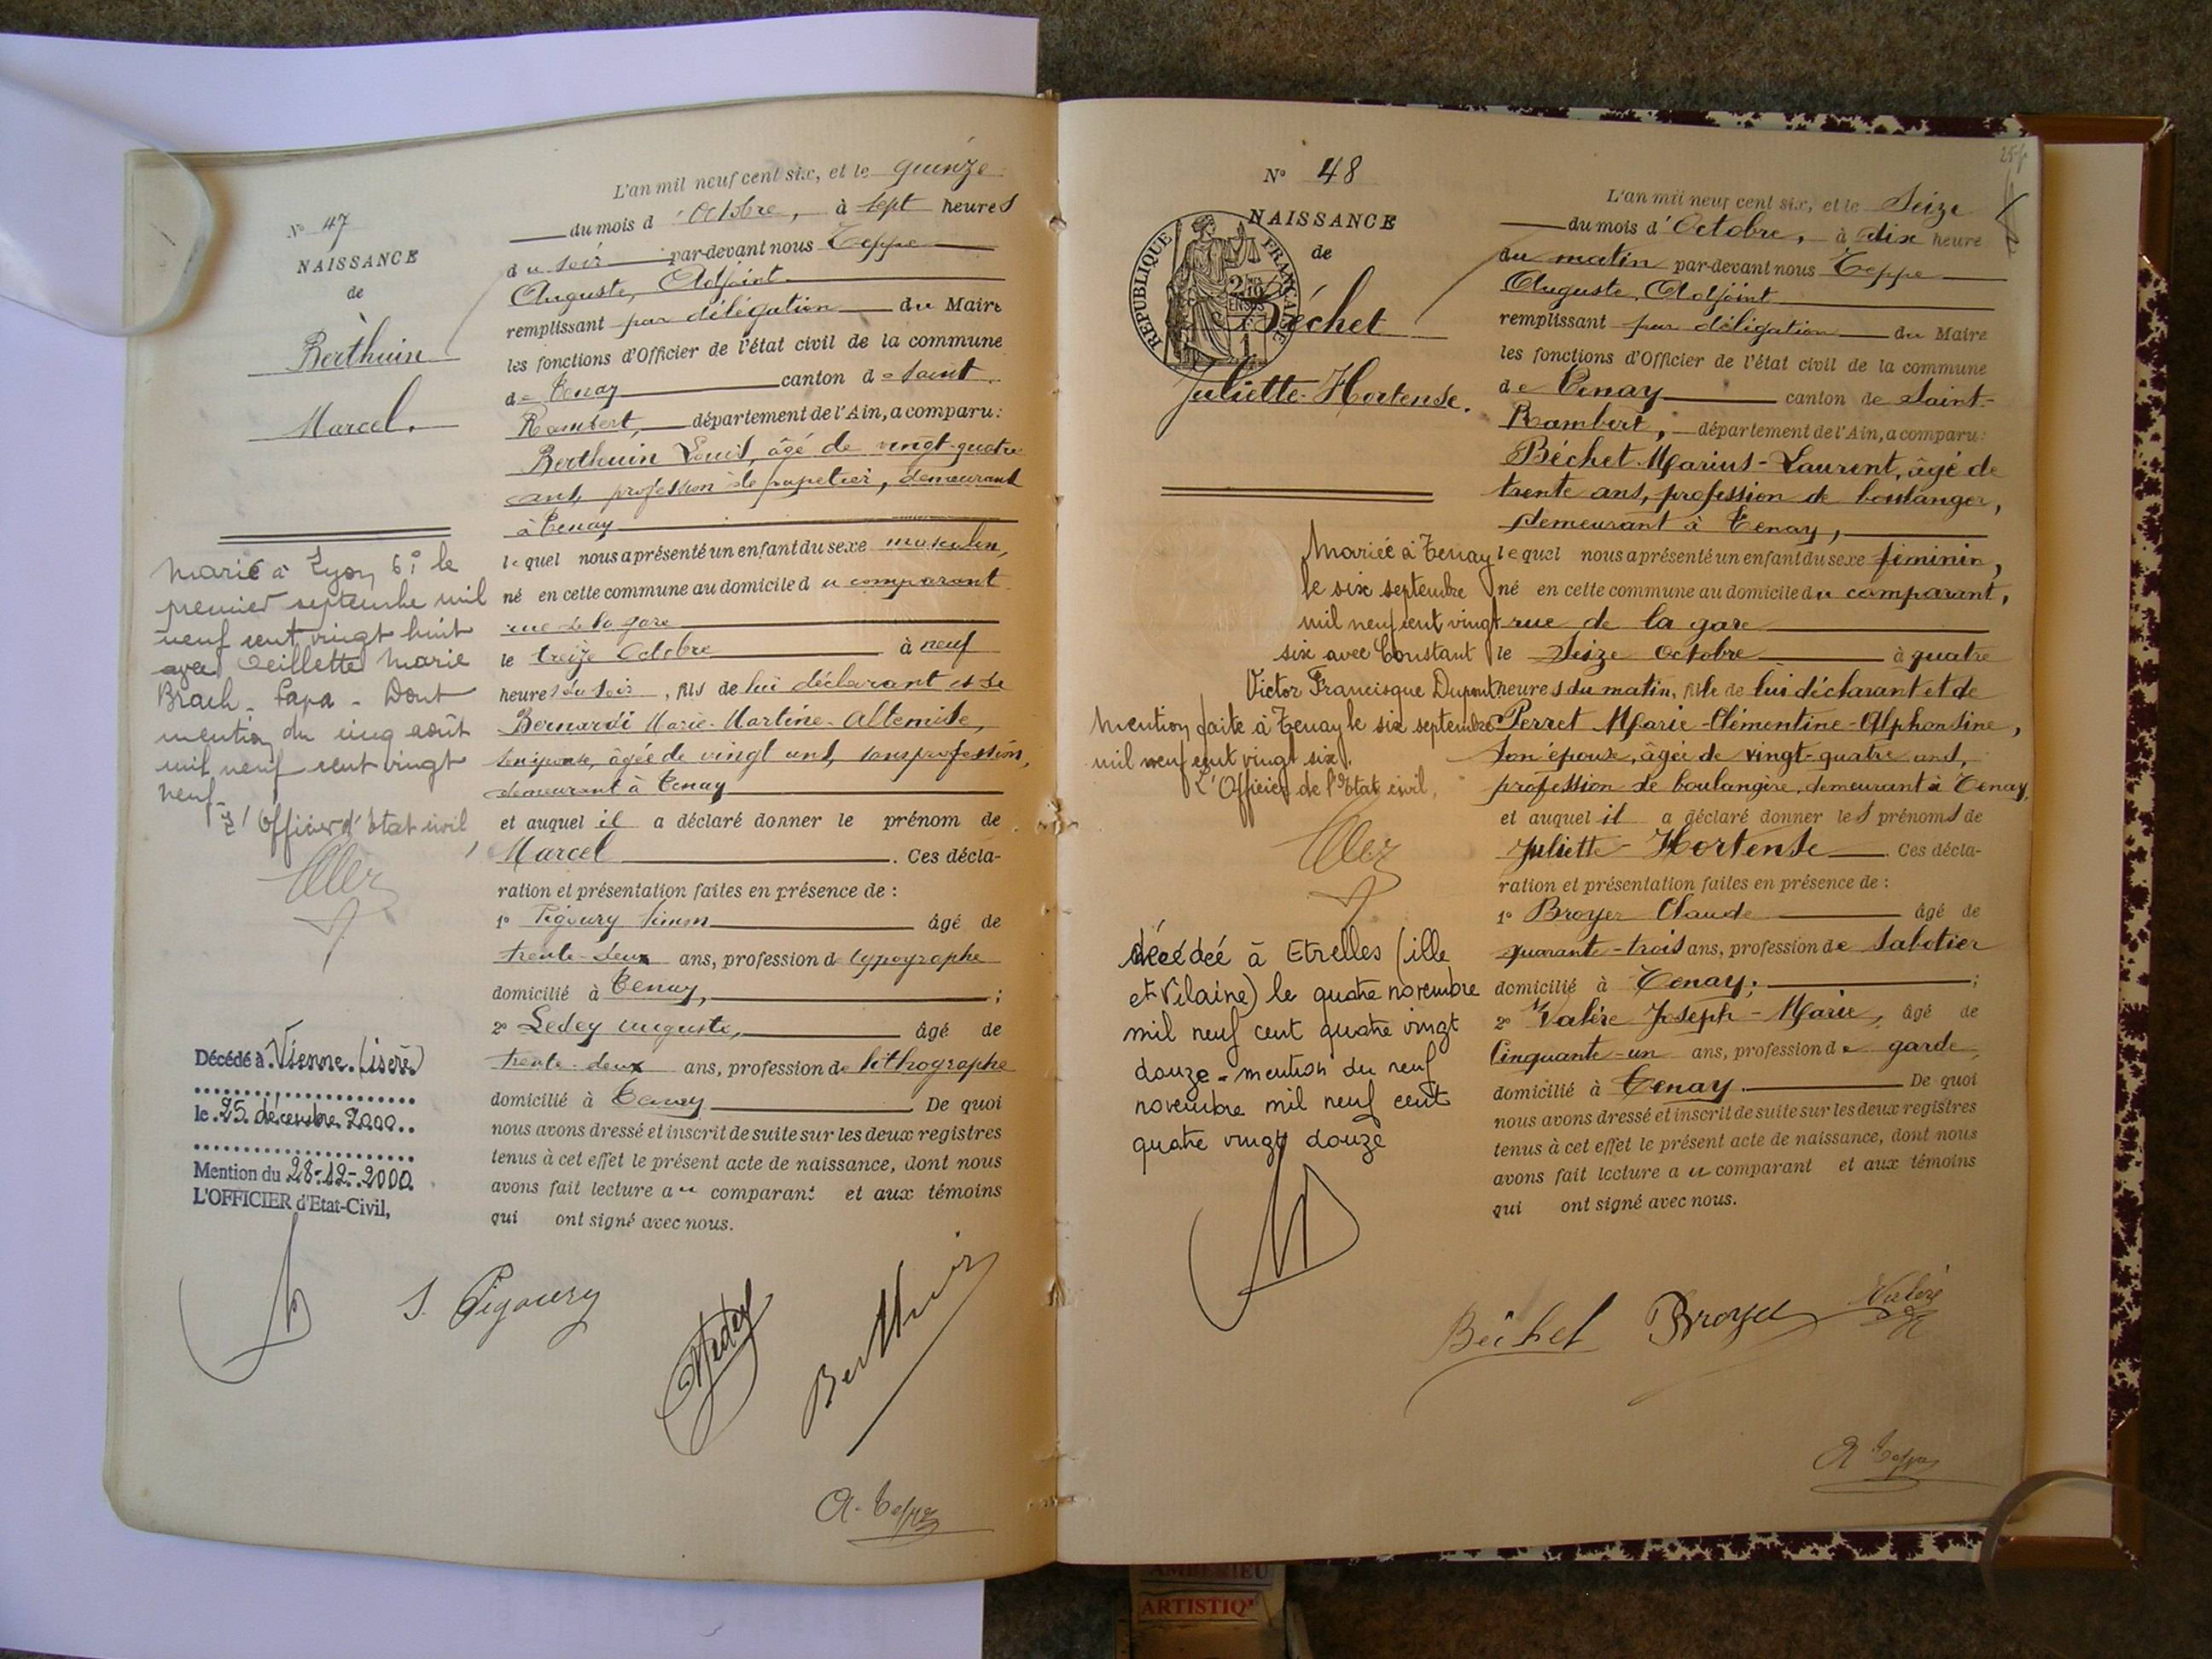 N° 47
NAISSANCE
de
Berthuin
Marcel.
Marié à Lyon 6° le
premier septembre mil
neuf cent vingt huit
avec Oeillette Marie
Brach - Papa - Dont
mention du cinq août
mil neuf cent vingt
neuf.
L'Officier d'Etat civil,
Décédé à Vienne (isère)
le 25 décembre 2000
Mention du 28-12-2000
L'OFFICIER d'Etat-Civil,
L'an mil neuf cent six, et le quinze
du mois d'Octobre, à sept heures
du soir par-devant nous Teppe
Auguste, Adjoint
remplissant par délégation du Maire
les fonctions d'Officier de l'état civil de la commune
de Tenay canton de Saint
Rambert, département de l'Ain, a comparu:
Berthuin Louis, âgé de vingt-quatre
ans, profession de papetier, demeurant
à Tenay
lequel nous a présenté un enfant du sexe masculin,
né en cette commune au domicile du comparant
rue de la gare
le treize Octobre à neuf
heures du soir, fils de lui déclarant et de
Bernardi Marie-Martine-Altemise,
son épouse, âgée de vingt ans, sans profession,
demeurant à Tenay
et auquel il a déclaré donner le prénom de
Marcel. Ces décla-
ration et présentation faites en présence de :
1° Pigoury Simon âgé de
trente-deux ans, profession de typographe
domicilié à Tenay, ;
2° Ledey Auguste, âgé de
trente-deux ans, profession de lithographe
domicilié à Tenay De quoi
nous avons dressé et inscrit de suite sur les deux registres
tenus à cet effet le présent acte de naissance, dont nous
avons fait lecture au comparant et aux témoins
qui ont signé avec nous.
S. Pigoury
Berthuin
A. Teppe
N° 48
NAISSANCE
de
REPUBLIQUE FRANÇAISE
Béchet
Juliette-Hortense.
Mariée à Tenay
le six septembre
mil neuf cent vingt
six avec Constant
Victor Francisque Dupont
Mention faite à Tenay le six septembre
mil neuf cent vingt six.
L'Officier de l'Etat civil,
décédée à Etrelles (ille
et Vilaine) le quatre novembre
mil neuf cent quatre vingt
douze - mention du neuf
novembre mil neuf cent
quatre vingt douze
L'an mil neuf cent six, et le Seize
du mois d'Octobre, à dix heure
du matin par-devant nous Teppe
Auguste, Adjoint
remplissant par déligation du Maire
les fonctions d'Officier de l'état civil de la commune
de Tenay canton de Saint-
Rambert, département de l'Ain, a comparu:
Béchet Marius-Laurent, âgé de
trente ans, profession de boulanger,
demeurant à Tenay,
lequel nous a présenté un enfant du sexe féminin,
né en cette commune au domicile du comparant,
rue de la gare
le Seize Octobre à quatre
heures du matin, fille de lui déclarant et de
Perret Marie-Clémentine-Alphonsine,
son épouse, âgée de vingt-quatre ans,
profession de boulangère, demeurant à Tenay,
et auquel il a déclaré donner les prénoms de
Juliette-Hortense. Ces décla-
ration et présentation faites en présence de :
1° Broyer Claude âgé de
quarante-trois ans, profession de Sabotier
domicilié à Tenay; ;
2° Valère Joseph-Marie, âgé de
Cinquante-un ans, profession de garde,
domicilié à Tenay. De quoi
nous avons dressé et inscrit de suite sur les deux registres
tenus à cet effet le présent acte de naissance, dont nous
avons fait lecture au comparant et aux témoins
qui ont signé avec nous.
Béchet Broyer Valère
A Teppe
AMBERIEU
ARTISTIQ